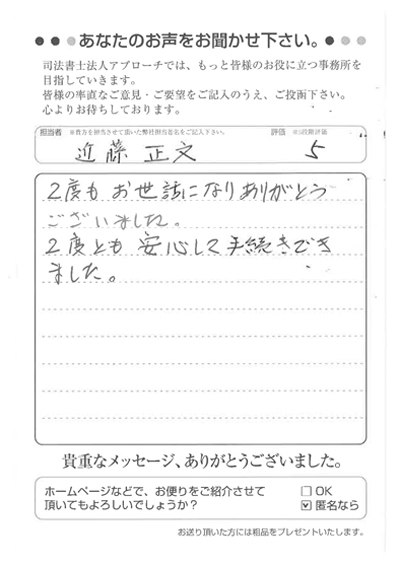 あなたのお声をお聞かせ下さい。
司法書士法人アプローチでは、もっと皆様のお役に立つ事務所を
目指していきます。
皆様の率直なご意見・ご要望をご記入のうえ、ご投函下さい。
心よりお待ちしております。
担当者 ※貴方を担当させて頂いた弊社担当者名をご記入下さい。 評価 ※5段階評価
近藤 正文 5
2度もお世話になりありがとう
ございました。
2度とも安心して手続きでき
ました。
貴重なメッセージ、ありがとうございました。
ホームページなどで、お便りをご紹介させて
頂いてもよろしいでしょうか?
□ OK
☑ 匿名なら
お送り頂いた方には粗品をプレゼントいたします。